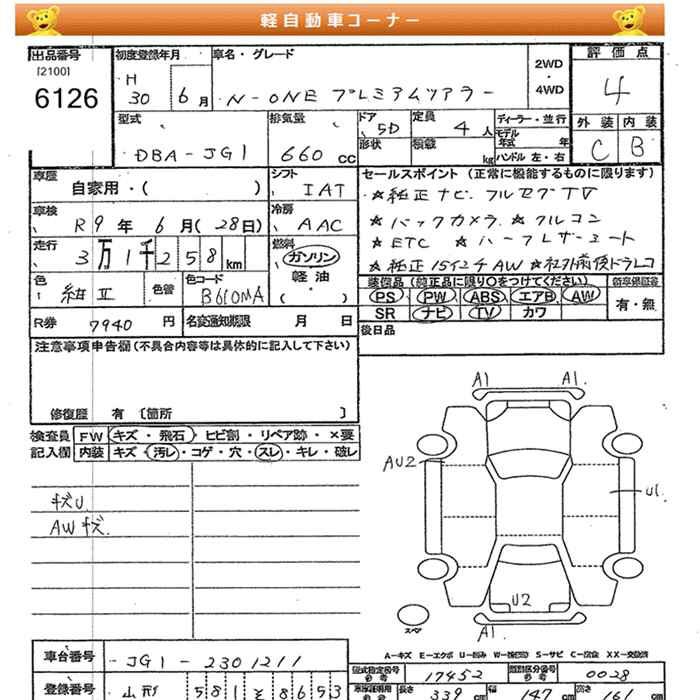 軽自動車コーナー
出品番号
[2100]
6126
初度登録年月
H
30 6 月
車名・グレード
N-ONE プレミアムツアラー
2WD
・
4WD
評価点
4
外装 内装
C B
型式
DBA-JG1
排気量
660 cc
ドア
5D
定員
4 人
形状
積載
kg
ディーラー・並行
モデル
年式 年
ハンドル 左・右
車歴
自家用・( )
シフト
IAT
車検
R9 年 6 月(28日)
冷房
AAC
走行
3万1千258 km
燃料
ガソリン
・
軽油
・
( )
色
紺Ⅱ
色替
色コード
B610MA
R券 7940 円
名変通知期限 月 日
セールスポイント (正常に機能するものに限ります)
★純正ナビ.フルセグTV
★バックカメラ.★クルコン
★ETC ★ハーフレザーシート
★純正15インチAW ★社外前後ドラレコ
装備品 (純正品に限り○をつけてください)
PS PW ABS エアB AW
SR ナビ TV カワ
新車保証書
有・無
後日品
注意事項申告欄(不具合内容等は具体的に記入して下さい)
修復歴 有 〔箇所 〕
検査員
記入欄
FW キズ・飛石・ヒビ割・リペア跡・×要
内装 キズ・汚レ・コゲ・穴・スレ・キレ・破レ
キズU
AWキズ.
A1 A1.
AU2
U1
U2
A1
スペア
A-キズ E-エクボ U-凹み W-波(凹凸) S-サビ C-腐食 XX-交換済
車台番号
JG1-2301211
登録番号
山形 581 そ 8653
型式指定番号
参考
17452
類別区分番号
参考
0028
車庫証明用
参考
長さ 339 cm
幅 147 cm
高さ 161 cm